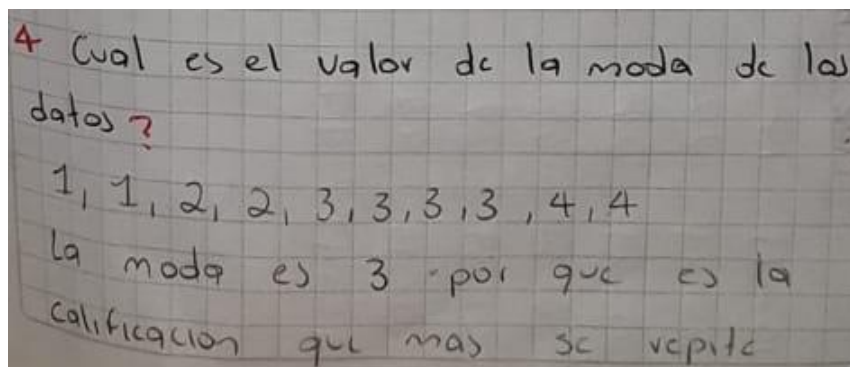 4 Cual es el valor de la moda de los
datos?
1, 1, 2, 2, 3, 3, 3, 3, 4, 4
la moda es 3 por que es la
calificacion que mas se repite